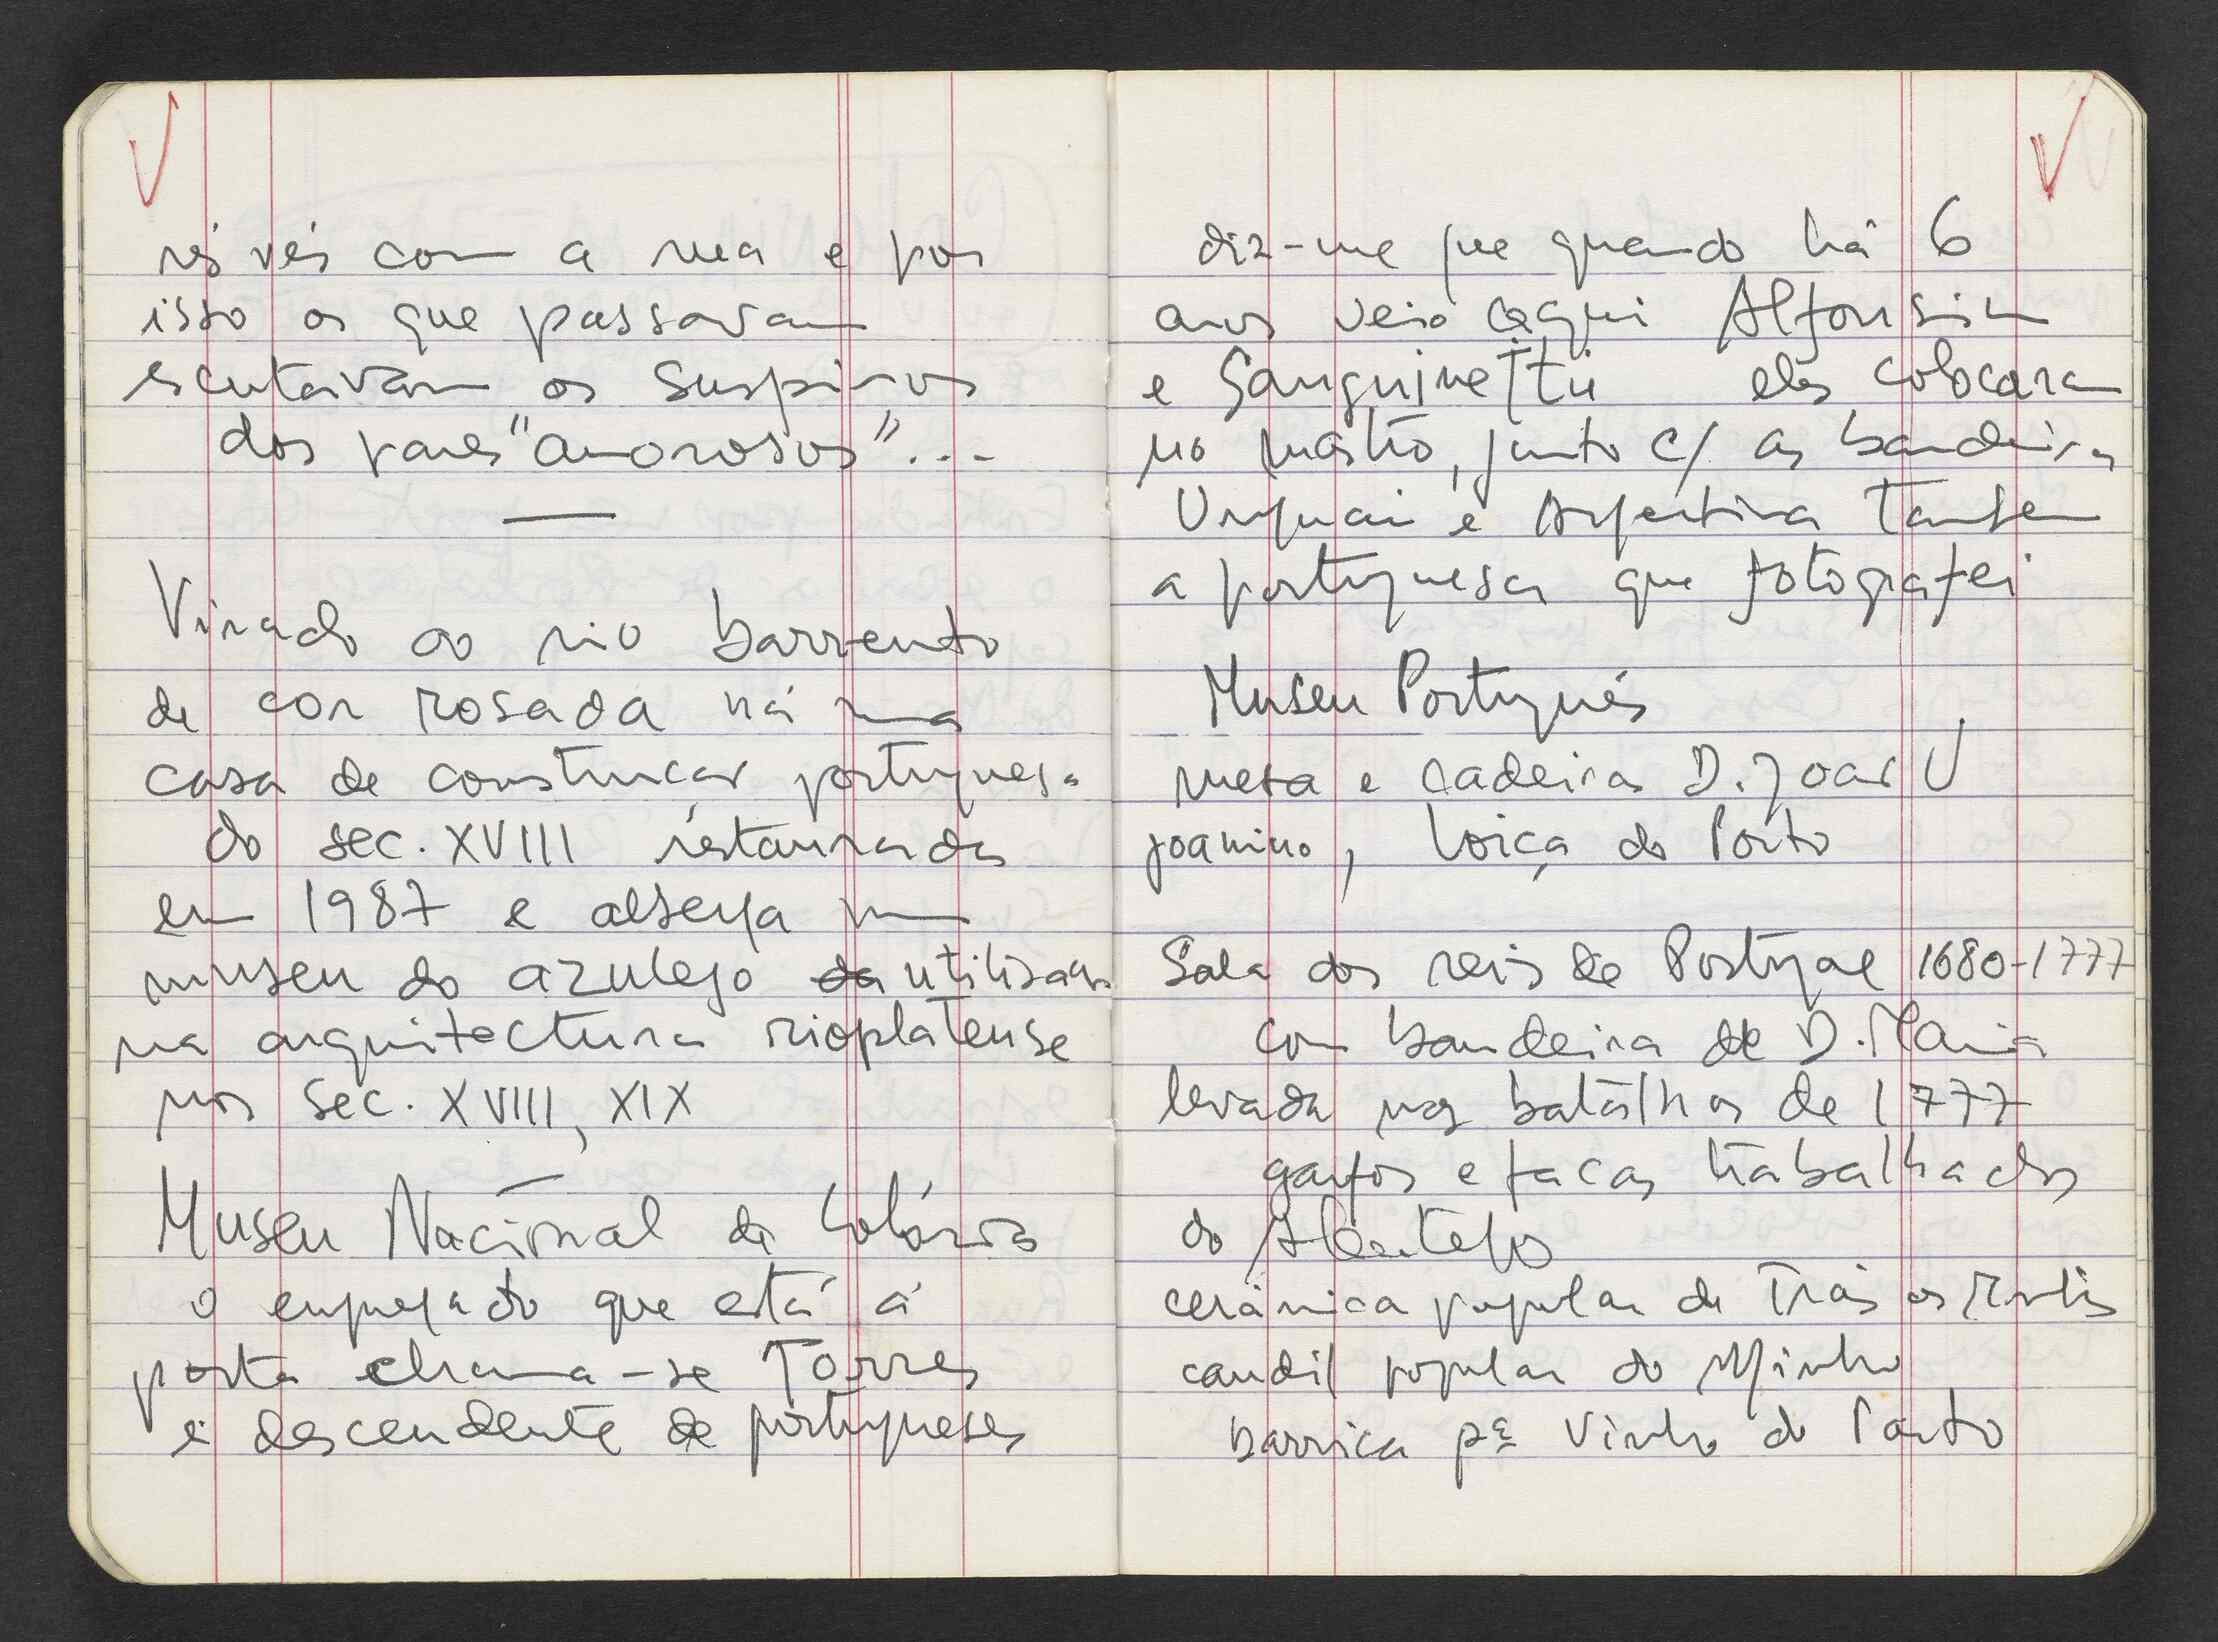 rés vés com a rua e por
isso os que passavam
escutavam os suspiros
dos pares "amorosos"...
Virado ao rio barrento
de cor rosada há uma
casa de construção portuguesa
do sec. XVIII restaurada
em 1987 e alberga um
museu do azulejo da utilisado
na arquitectura rioplatense
nos sec. XVIII, XIX
Museu Nacional da Colónia
o empregado que está à
porta chama-se Torres
é descendente de portugueses
diz-me que quando há 6
anos veio aqui Alfonsin
e Sanguinetti eles colocaram
no mastro, junto c/ as bandeiras
Uruguai e Argentina tambem
a portuguesa que fotografei
Museu Português
mesa e cadeiras D. Joao V
joanino, loiça do Porto
Sala dos reis de Portugal 1680-1777
com bandeira de D. Maria
levada nas batalhas de 1777
garfos e facas trabalhados
do Alentejo
cerâmica popular de Trás os Montes
candil popular do Minho
barrica pª vinho do Porto